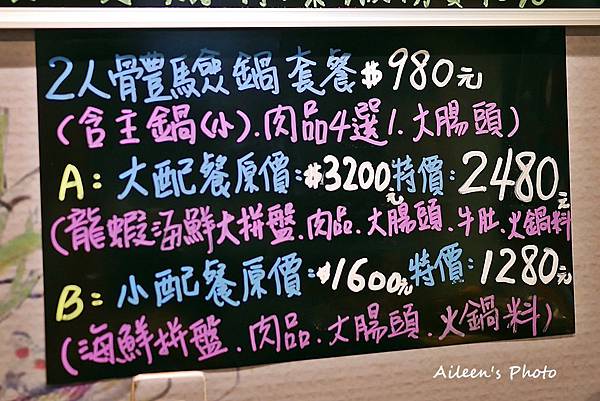 2人骨體驗鍋套餐$980元
(含主鍋(小).肉品4選1.大腸頭)
A:大配餐原價:$3200元特價:2480元
(龍蝦海鮮大拼盤.肉品.大腸頭.牛肚.火鍋料
B:小配餐原價:$1600元特價:1280元
(海鮮拼盤.肉品.大腸頭.火鍋料)
Aileen's Photo